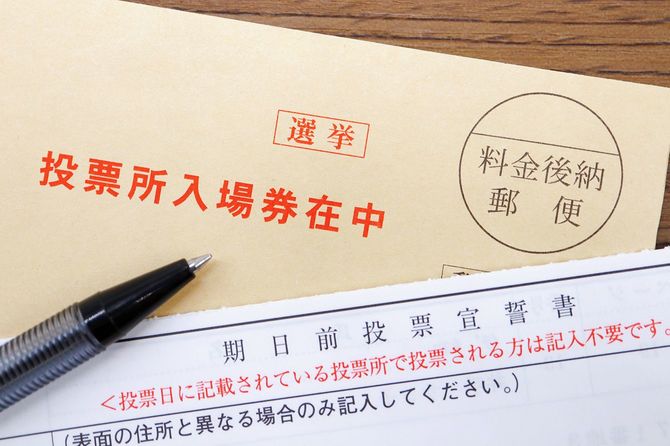 選挙
投票所入場券在中
料金後納
郵便
期日前投票宣誓書
<投票日に記載されている投票所で投票される方は記入不要です。
(表面の住所と異なる場合のみ記入してください。)